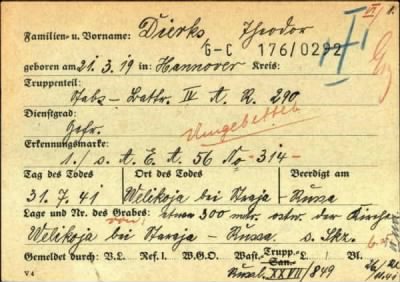 Familien- u. Vorname: Dierks, Theodor
G-C 176/0292
geboren am 21.3.19 in: Hannover Kreis:
Truppenteil:
Stabs-Battr. IV A. R. 290
Dienstgrad:
Gefr. Umgebettet
Erkennungsmarke:
1./s. A. E. A. 56 No -314-
Tag des Todes Ort des Todes Beerdigt am
31.7.41 Welikoja bei Staraja-Russa
Lage und Nr. des Grabes: etwa 300 mtr. ostw. der Kirche
Welikoja bei Staraja-Russa. s. Skz.
Gemeldet durch: V.L. Ref. I. W.G.O. Wast. Trupp. San. L. Vl.
XXVII/849
V 4